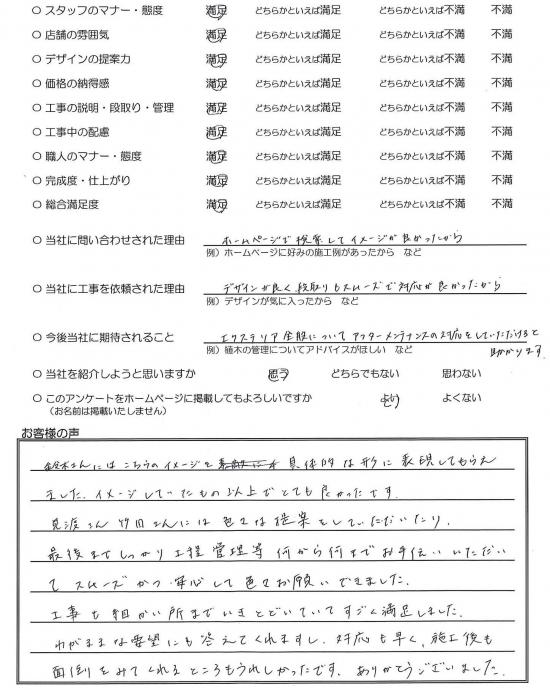 ○ スタッフのマナー・態度 満足 どちらかといえば満足 どちらかといえば不満 不満
○ 店舗の雰囲気 満足 どちらかといえば満足 どちらかといえば不満 不満
○ デザインの提案力 満足 どちらかといえば満足 どちらかといえば不満 不満
○ 価格の納得感 満足 どちらかといえば満足 どちらかといえば不満 不満
○ 工事の説明・段取り・管理 満足 どちらかといえば満足 どちらかといえば不満 不満
○ 工事中の配慮 満足 どちらかといえば満足 どちらかといえば不満 不満
○ 職人のマナー・態度 満足 どちらかといえば満足 どちらかといえば不満 不満
○ 完成度・仕上がり 満足 どちらかといえば満足 どちらかといえば不満 不満
○ 総合満足度 満足 どちらかといえば満足 どちらかといえば不満 不満
○ 当社に問い合わせされた理由 ホームページで検索してイメージが良かったから
例）ホームページに好みの施工例があったから など
○ 当社に工事を依頼された理由 デザインが良く段取りもスムーズで対応が良かったから
例）デザインが気に入ったから など
○ 今後当社に期待されること エクステリア全般についてアフターメンテナンスの対応をしていただけると
助かります
例）植木の管理についてアドバイスがほしい など
○ 当社を紹介しようと思いますか 思う どちらでもない 思わない
○ このアンケートをホームページに掲載してもよろしいですか よい よくない
（お名前は掲載いたしません）
お客様の声
鈴木さんにはこちらのイメージを 具体的な形に表現してもらえ
ました。イメージしていたもの以上でとても良かったです。
見渡さん 竹田さんには色々な提案をしていただいたり、
最後までしっかり工程管理等 何から何までお手伝いいただい
て スムーズかつ安心して色々お願いできました。
工事も細かい所までいきとどいていてすごく満足しました。
わがままな要望にも答えてくれますし、対応も早く、施工後も
面倒をみてくれるところもうれしかったです。ありがとうございました。